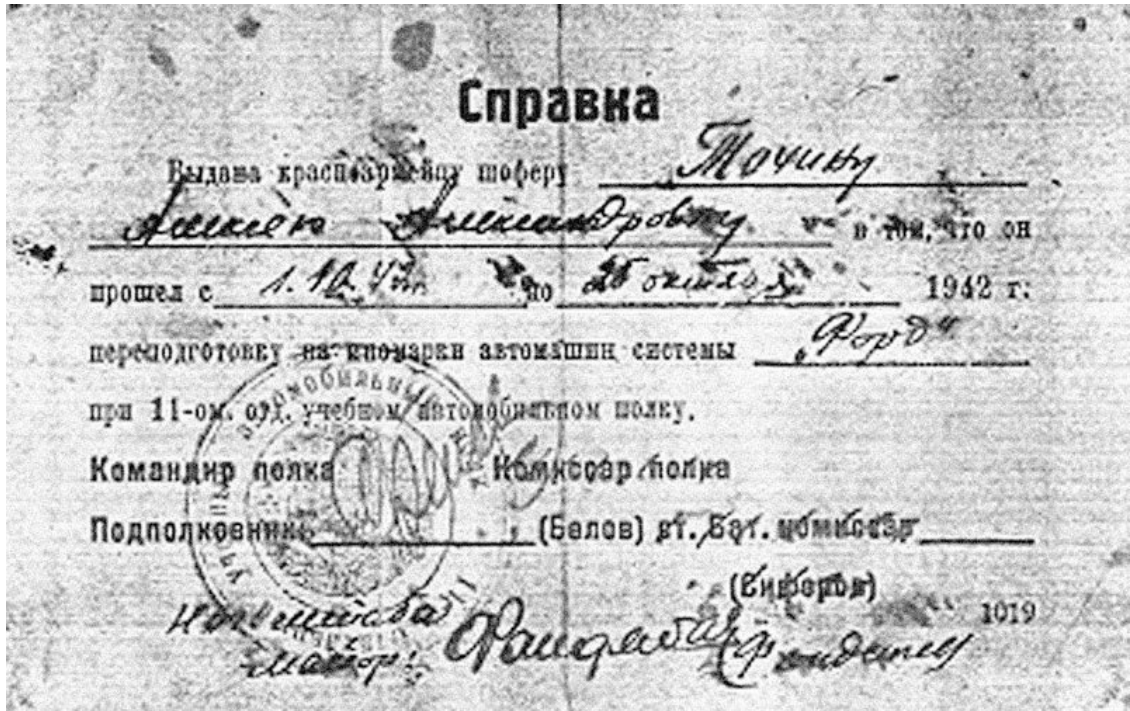 Справка
Выдана красноармейцу шоферу Точину
Алексею Александровичу в том, что он
прошел с 1.10.42 по 25 октября 1942 г.
переподготовку на иномарки автомашин системы „Форд"
при 11-ом. отд. учебном автомобильном полку.
Командир полка Комиссар полка
Подполковник (Белов) ст. Бат. комиссар
1019
Нач штаба
майор: